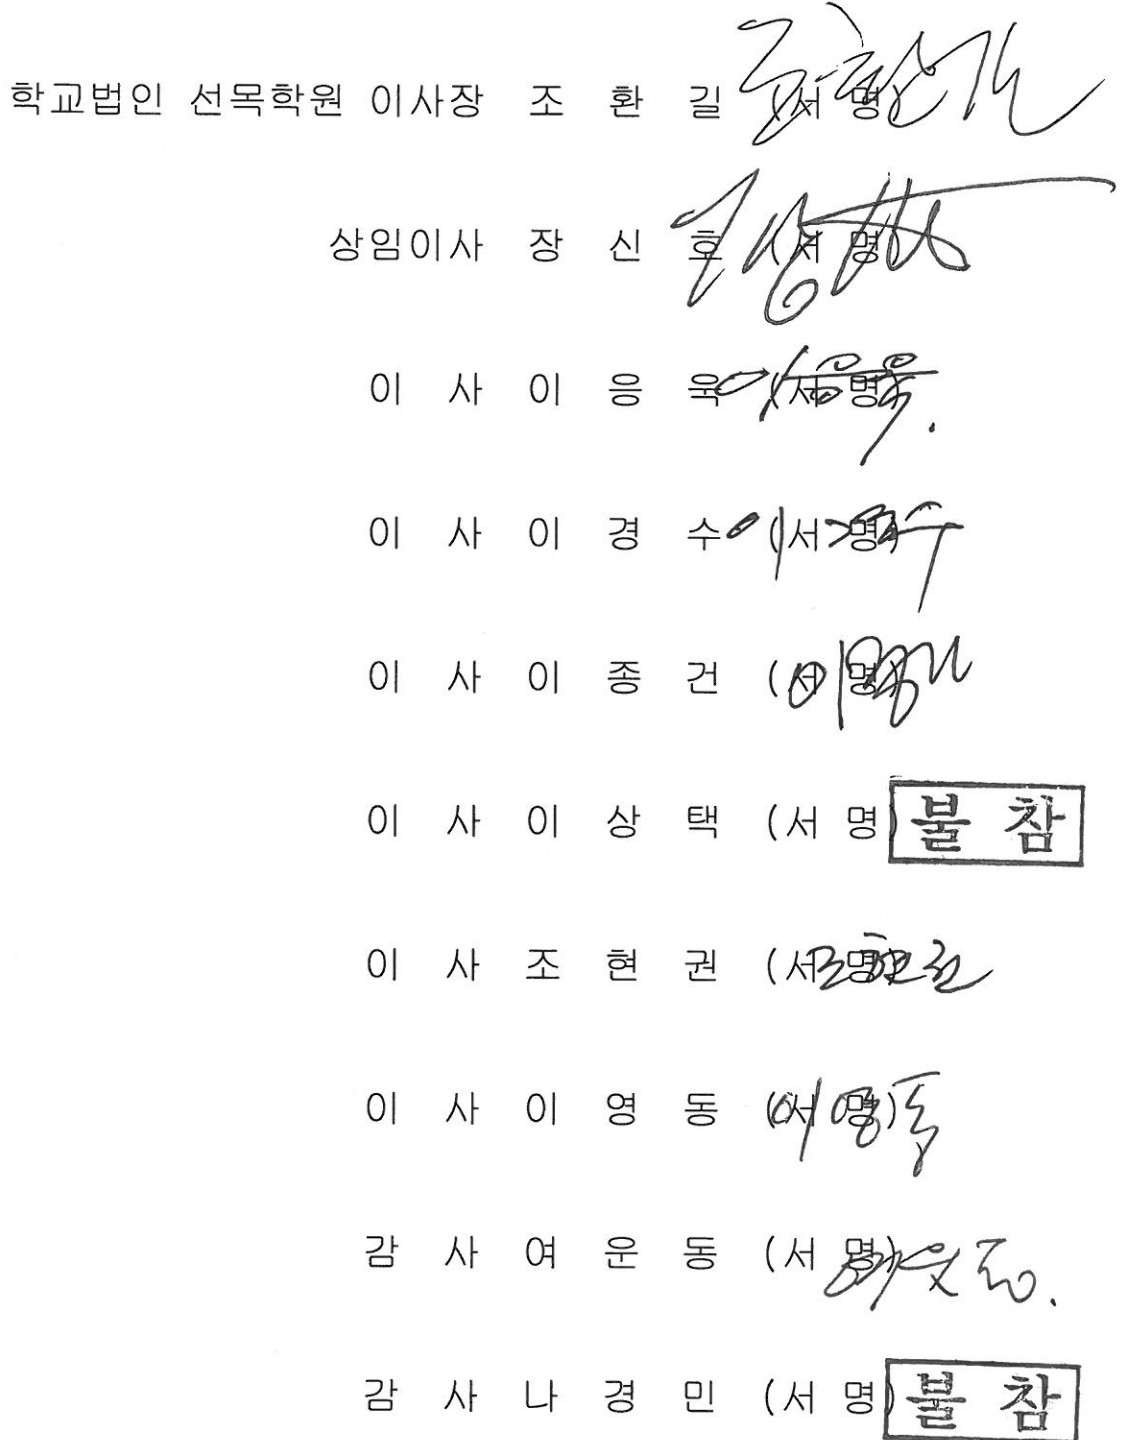 학교법인 선목학원 이사장 조 환 길 (서 명) 조환길
상임이사 장 신 호 (서 명)
이 사 이 응 욱 (서 명) 이응욱
이 사 이 경 수 (서 명) 이경수
이 사 이 종 건 (서 명) 이종건
이 사 이 상 택 (서 명) 불 참
이 사 조 현 권 (서 명) 조현권
이 사 이 영 동 (서 명) 이영동
감 사 여 운 동 (서 명) 여운동
감 사 나 경 민 (서 명) 불 참